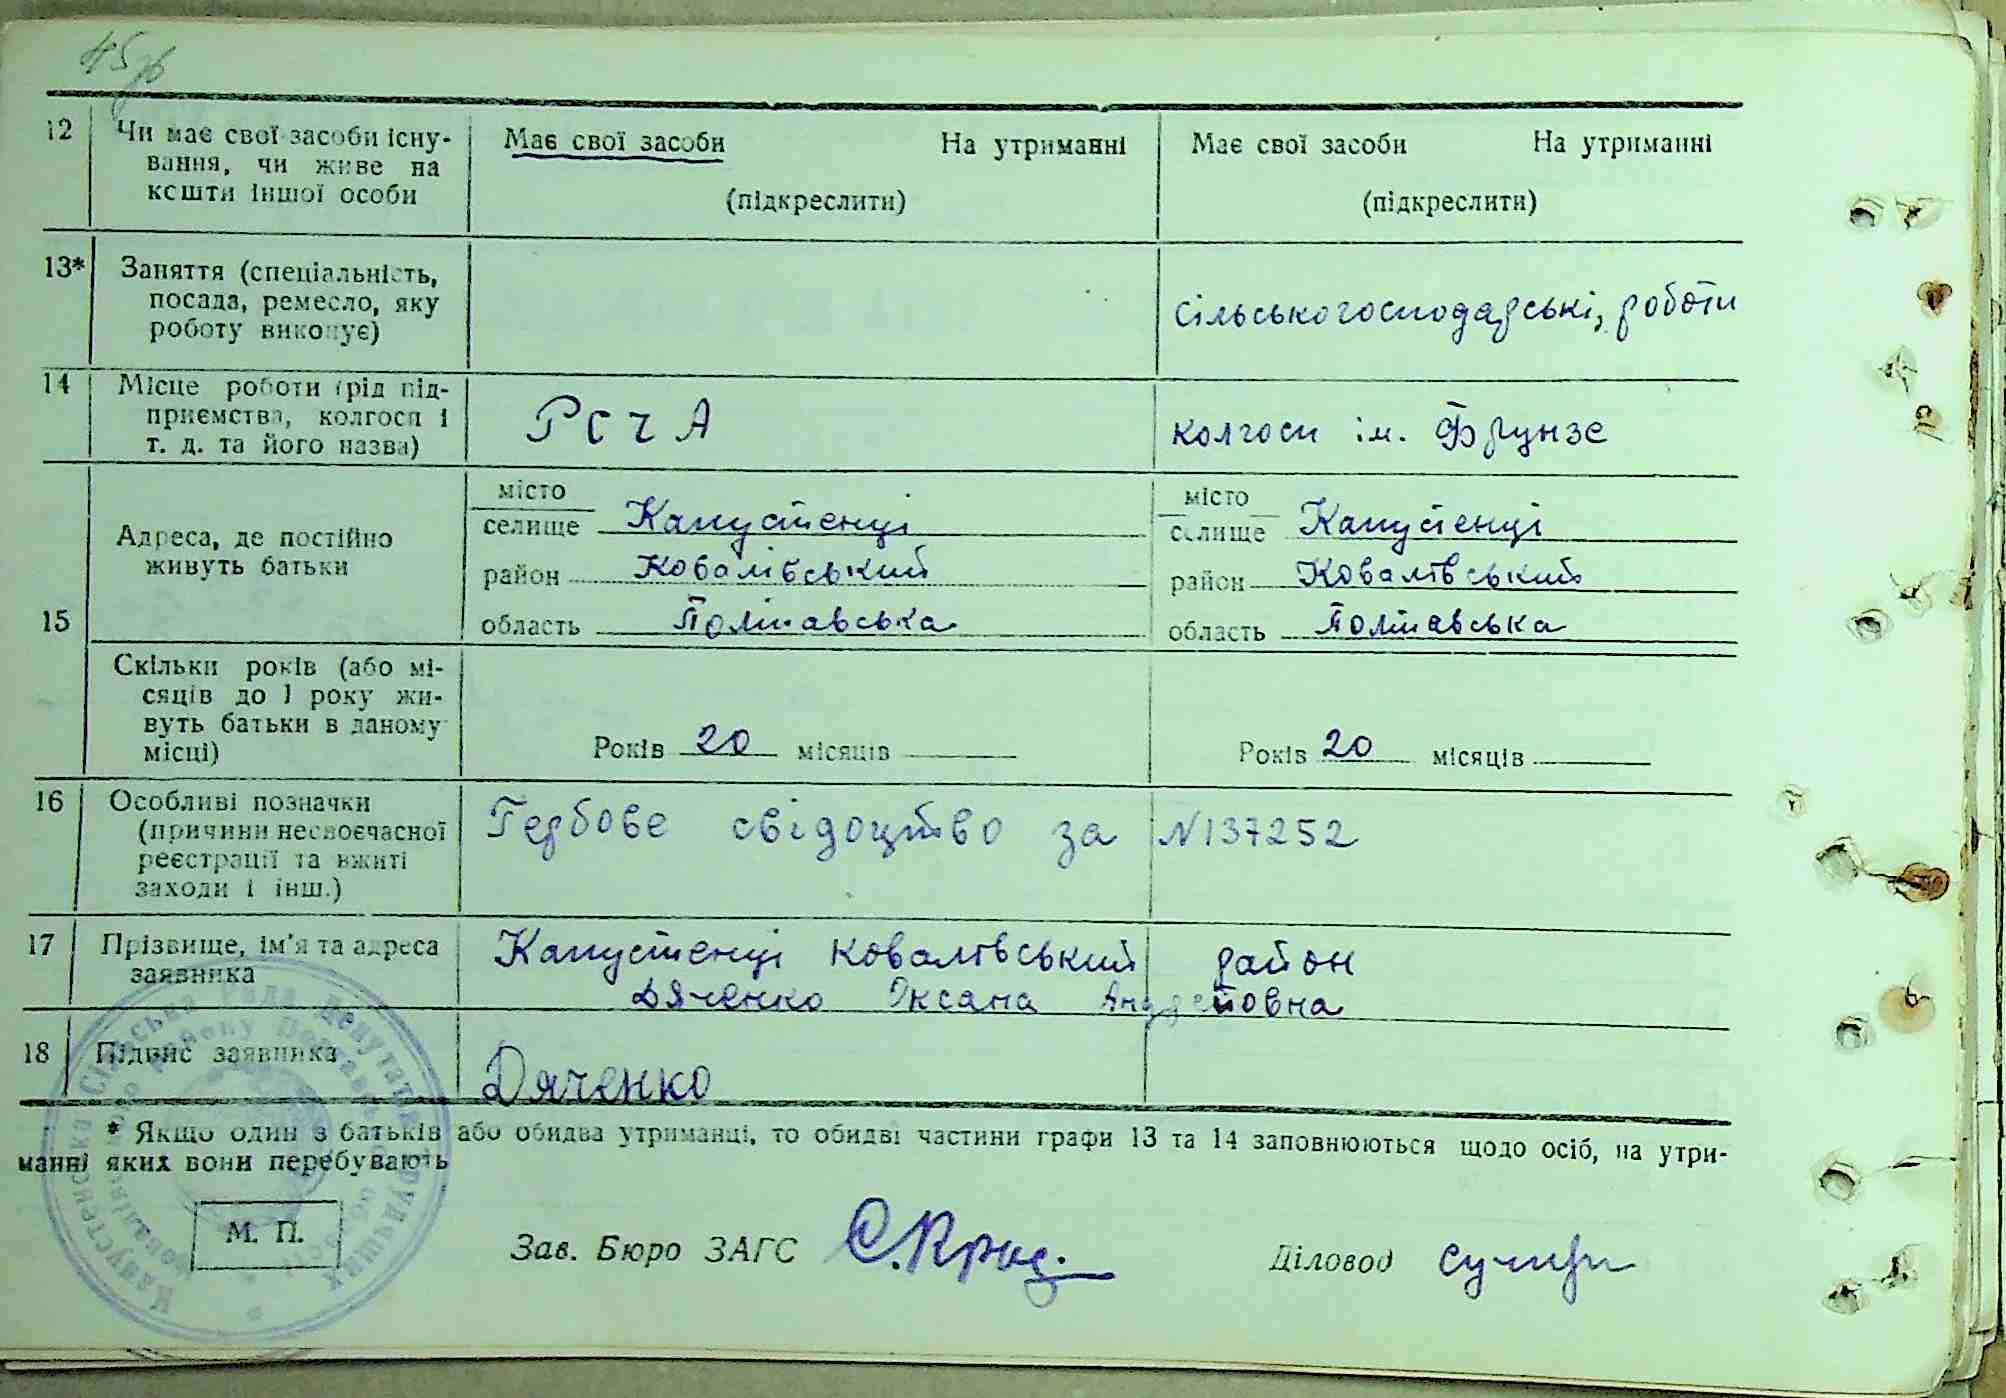 45
12 Чи має свої засоби існу-
вання, чи живе на
кошти іншої особи
Має свої засоби На утриманні
(підкреслити)
Має свої засоби На утриманні
(підкреслити)
13* Заняття (спеціальність,
посада, ремесло, яку
роботу виконує)
сільськогосподарські, роботи
14 Місце роботи (рід під-
приємства, колгосп і
т. д. та його назва)
РСЧА
колгосп ім. Фрунзе
15 Адреса, де постійно
живуть батьки
місто
селище Капустенці
район Ковалівський
область Полтавська
місто
селище Капустенці
район Ковалівський
область Полтавська
Скільки років (або мі-
сяців до 1 року жи-
вуть батьки в даному
місці)
Років 20 місяців
Років 20 місяців
16 Особливі позначки
(причини несвоєчасної
реєстрації та вжиті
заходи і інш.)
Гербове свідоцтво за N137252
17 Прізвище, ім'я та адреса
заявника
Капустенці Ковалівський район
Дяченко Оксана Андрейовна
18 Підпис заявника
Дяченко
* Якщо один з батьків або обидва утриманці, то обидві частини графи 13 та 14 заповнюються щодо осіб, на утри-
манні яких вони перебувають
М. П.
Зав. Бюро ЗАГС
Діловод
Капустенська Сільська Рада депутатів трудящих
Ковалівського району Полтавської області